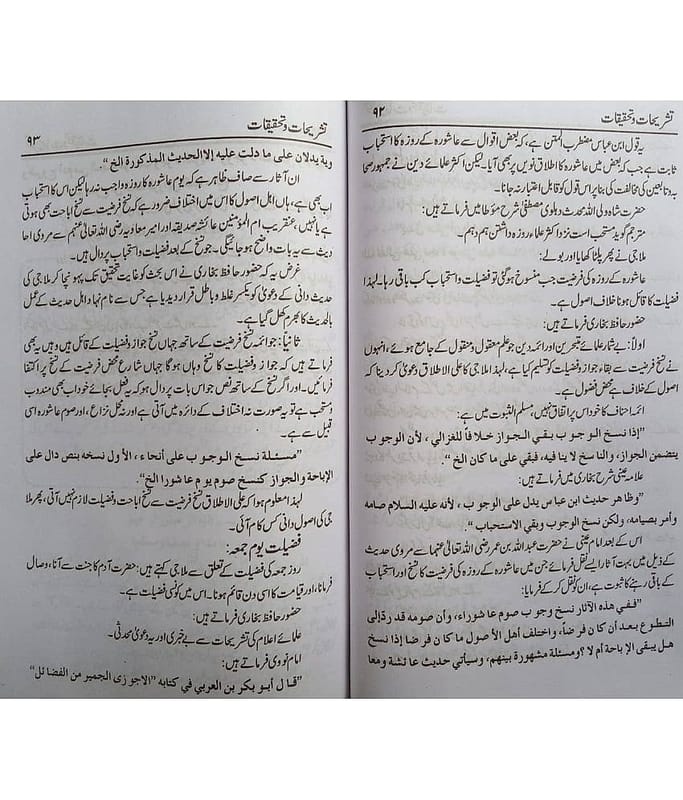 تشریحات و تحقیقات ۹۲
یہ قول ابن عباس مضطرب المتن ہے، کہ بعض اقوال سے عاشورہ کے روزہ کا استحباب
ثابت ہے جب کہ بعض میں عاشورہ کا اطلاق نویں پر بھی آیا۔ لیکن اکثر علمائے دین نے جمہور صحا
بہ و تابعین کی مخالفت کی بنا پر اس قول کو قابل اعتبار نہ جانا۔
حضرت شاہ ولی اللہ محدث دہلوی مصفیٰ شرح مؤطا میں فرماتے ہیں:
مترجم گوید مستحب است نزد اکثر علماء روزہ داشتن ہم دہم۔
ملا جی نے پھر پلٹا کھایا اور بولے:
عاشورہ کے روزہ کی فرضیت جب منسوخ ہو گئی تو فضیلت و استحباب کب باقی رہا۔ لہٰذا
فضیلت کا قائل ہونا خلاف اصول ہے۔
حضور حافظ بخاری فرماتے ہیں:
اولاً: بے شمار علمائے متبحرین اور ائمہ دین جو علم معقول و منقول کے جامع ہوئے، انہوں
نے نسخ فرضیت سے بقاء جواز و فضیلت کو تسلیم کیا ہے، لہٰذا ملا جی کا علی الاطلاق دعویٰ کر دینا کہ
اصول کے خلاف ہے محض فضول ہے۔
ائمہ احناف کا خود اس پر اتفاق نہیں، مسلم الثبوت میں ہے:
”إذا نسخ الوجوب بقي الجواز خلافاً للغزالي، لأن الوجوب
يتضمن الجواز، والناسخ لا ينافيه، فبقي على ما كان الخ“.
علامہ عینی شرح بخاری میں فرماتے ہیں:
”وظاهر حديث ابن عباس يدل على الوجوب، لأنه عليه السلام صامه
وأمر بصيامه، ولكن نسخ الوجوب وبقي الاستحباب“.
اس کے بعد امام عینی نے حضرت عبد اللہ بن عمر رضی اللہ تعالیٰ عنہما سے مروی حدیث
کے ذیل میں بہت آثار ایسے نقل فرمائے جن میں عاشورہ کے روزہ کی فرضیت کا نسخ اور استحباب
کے باقی رہنے کا ثبوت ہے، ان کو نقل کر کے فرمایا:
”ففي هذه الآثار نسخ وجوب صوم عاشوراء، وأن صومه قد رد إلى
التطوع بعد أن كان فرضاً، واختلف أهل الأصول ما كان فرضا إذا نسخ
هل يبقى الإباحة أم لا؟ ومسئلة مشهورة بينهم، وسيأتي حديث عائشة ومعا
تشریحات و تحقیقات ۹۳
وية يدلان على ما دلت عليه إلا الحديث المذكورة الخ“.
ان آثار سے صاف ظاہر ہے کہ یوم عاشورہ کا روزہ واجب نہ رہا لیکن اس کا استحباب
اب بھی ہے، ہاں اہل اصول کا اس میں اختلاف ضرور ہے کہ نسخ فرضیت سے نسخ اباحت بھی ہوتی
ہے یا نہیں، عنقریب ام المؤمنین عائشہ صدیقہ اور امیر معاویہ رضی اللہ تعالیٰ عنہم سے مروی احا
دیث سے یہ بات واضح ہو جائیگی۔ جو نسخ کے بعد فضیلت و استحباب پر دال ہیں۔
غرض یہ کہ حضور حافظ بخاری نے اس بحث کو غایت تحقیق تک پہونچا کر ملا جی کی
حدیث دانی کے دعویٰ کو یکسر غلط و باطل قرار دیدیا ہے جس سے نام نہاد اہل حدیث کے عمل
بالحدیث کا بھرم کھل گیا ہے۔
ثانیاً: جو ائمہ نسخ فرضیت کے ساتھ جہاں نسخ جواز و فضیلت کے قائل ہیں وہیں یہ بھی
فرماتے ہیں کہ جواز و فضیلت کا نسخ وہاں ہوگا جہاں شارع محض فرضیت کے نسخ پر اکتفا
فرمائیں۔ اور اگر نسخ کے ساتھ نص جو اس بات پر دال ہو کہ یہ فعل بجائے خود اب بھی مندوب
و مستحب ہے تو یہ صورت نہ اختلاف کے دائرہ میں آتی ہے اور نہ محل نزاع، اور صوم عاشورہ اسی
قبیل سے ہے۔
”مسئلة نسخ الوجوب على أنحاء، الأول نسخه بنص دال على
الإباحة والجواز كنسخ صوم يوم عاشورا الخ“.
لہٰذا معلوم ہوا کہ علی الاطلاق نسخ فرضیت سے نسخ اباحت و فضیلت لازم نہیں آتی، پھر ملا
جی کی اصول دانی کس کام آئی۔
فضیلت یوم جمعہ:
روز جمعہ کی فضیلت کے تعلق سے ملا جی کہتے ہیں: حضرت آدم کا جنت سے آنا، وصال
فرمانا، اور قیامت کا اسی دن قائم ہونا۔ اس میں کونسی فضیلت ہے۔
حضور حافظ بخاری فرماتے ہیں:
علمائے اعلام کی تشریحات سے بے خبری اور یہ دعویٰ محدثی۔
امام نووی فرماتے ہیں:
”قال أبو بكر بن العربي في كتابه ”الاجوزى الجمير من الفضائل“